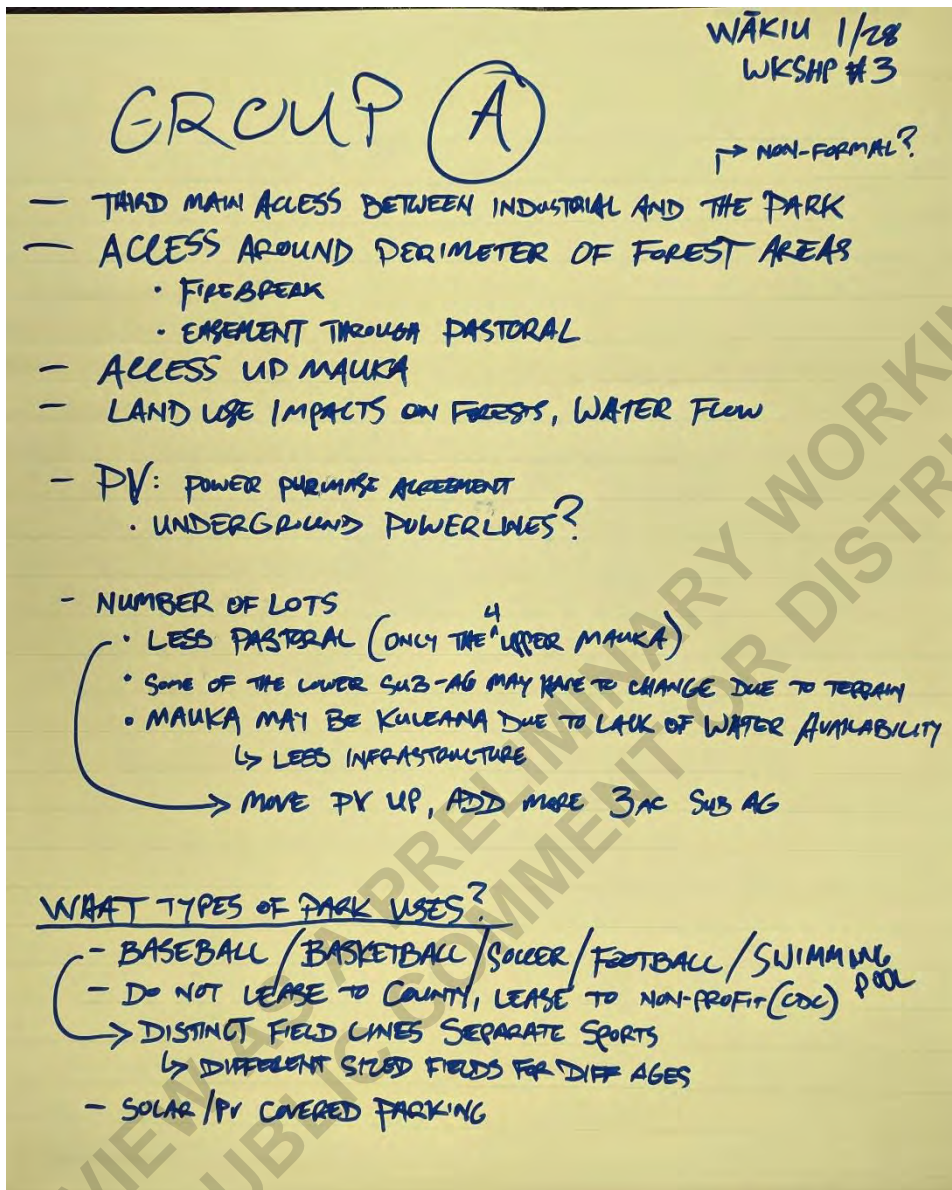 WĀKIU 1/28
WKSHP #3
GROUP A
→ NON-FORMAL?
— THIRD MAIN ACCESS BETWEEN INDUSTRIAL AND THE PARK
— ACCESS AROUND PERIMETER OF FOREST AREAS
• FIREBREAK
• EASEMENT THROUGH PASTORAL
— ACCESS UP MAUKA
— LAND USE IMPACTS ON FORESTS, WATER FLOW
— PV: POWER PURCHASE AGREEMENT
• UNDERGROUND POWERLINES?
- NUMBER OF LOTS
• LESS PASTORAL (ONLY THE 4 UPPER MAUKA)
• SOME OF THE LOWER SUB-AG MAY HAVE TO CHANGE DUE TO TERRAIN
• MAUKA MAY BE KULEANA DUE TO LACK OF WATER AVAILABILITY
↳ LESS INFRASTRUCTURE
→ MOVE PV UP, ADD MORE 3 AC SUB AG
WHAT TYPES OF PARK USES?
- BASEBALL / BASKETBALL / SOCCER / FOOTBALL / SWIMMING POOL
- DO NOT LEASE TO COUNTY, LEASE TO NON-PROFIT (CDC)
→ DISTINCT FIELD LINES SEPARATE SPORTS
↳ DIFFERENT SIZED FIELDS FOR DIFF AGES
- SOLAR/PV COVERED PARKING
VIEW AS A PRELIMINARY WORKIN
UBLIC COMMENT OR DISTRI